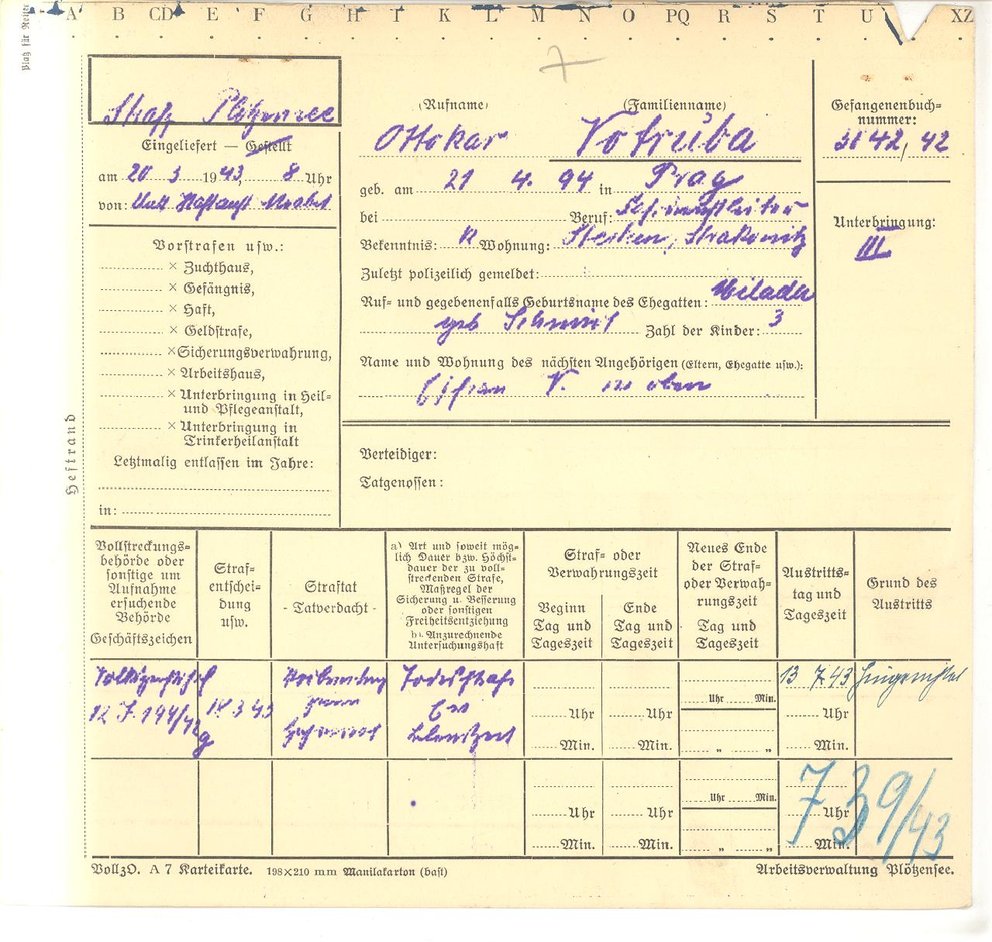 Platz für Reiter
A B CD E F G H I K L M N O PQ R S T U XZ
7
Straf Plötzensee
Eingeliefert — Gestellt
am 20 3 1943, 8 Uhr
von: Unt Haftanst Moabit
Vorstrafen usw.:
× Zuchthaus,
× Gefängnis,
× Haft,
× Geldstrafe,
× Sicherungsverwahrung,
× Arbeitshaus,
× Unterbringung in Heil-
und Pflegeanstalt,
× Unterbringung in
Trinkerheilanstalt
Letztmalig entlassen im Jahre:
in:
Heftrand
(Rufname) (Familienname)
Ottokar Votruba
geb. am 21 4. 94 in Prag
bei Beruf:
Bekenntnis: K Wohnung: Strakonitz
Zuletzt polizeilich gemeldet:
Ruf- und gegebenenfalls Geburtsname des Ehegatten: Milada
geb Schmidt Zahl der Kinder: 3
Name und Wohnung des nächsten Angehörigen (Eltern, Ehegatte usw.):
Ehefrau V. w oben
Gefangenenbuch-
nummer:
3042, 42
Unterbringung:
III
Verteidiger:
Tatgenossen:
Vollstreckungs-
behörde oder
sonstige um
Aufnahme
ersuchende
Behörde
Geschäftszeichen
Straf-
entschei-
dung
usw.
Straftat
- Tatverdacht -
a) Art und soweit mög-
lich Dauer bzw. Höchst-
dauer der zu voll-
streckenden Strafe,
Maßregel der
Sicherung u. Besserung
oder sonstigen
Freiheitsentziehung
b) Anzurechnende
Untersuchungshaft
Straf- oder
Verwahrungszeit
Beginn
Tag und
Tageszeit
Ende
Tag und
Tageszeit
Neues Ende
der Straf-
oder Verwah-
rungszeit
Tag und
Tageszeit
Austritts-
tag und
Tageszeit
Grund des
Austritts
Volksgerichtshof Vorbereitung Todesstrafe 13 7 43 hingerichtet
Uhr Min.
12 J. 194/42 g 18 3 43 zum Ers Uhr Uhr Uhr
Hochverrat Min. Min. „ „ Min.
Uhr Min.
Uhr Uhr Uhr
Min. Min. „ „ Min.
739/43
VollzO. A 7 Karteikarte. 198×210 mm Manilakarton (hast) Arbeitsverwaltung Plötzensee.